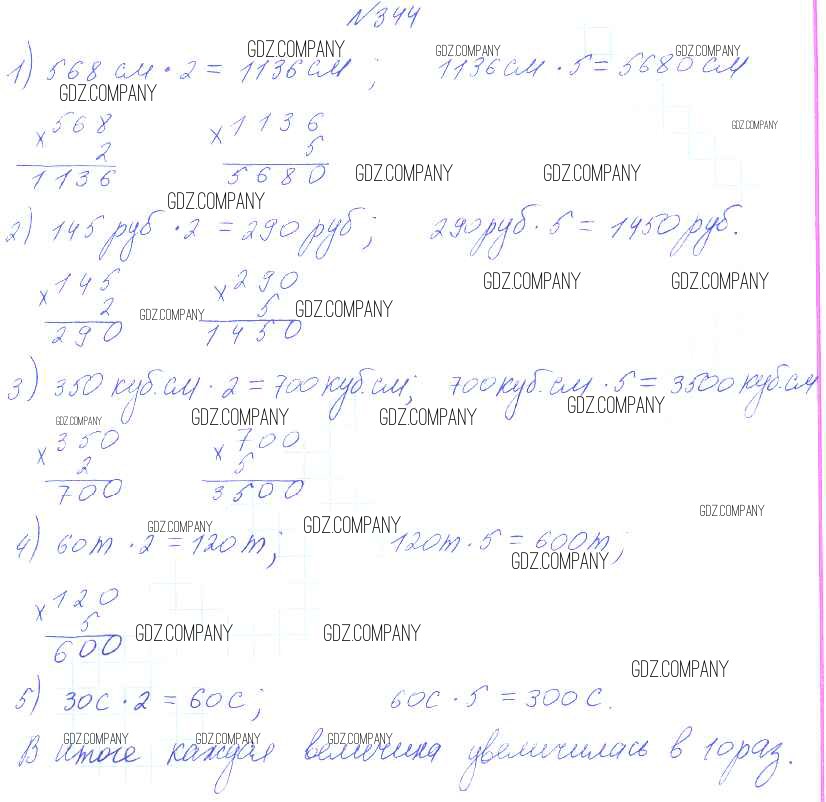 №344
GDZ.COMPANY GDZ.COMPANY GDZ.COMPANY
1) 568 см · 2 = 1136 см ; 1136 см · 5 = 5680 см
GDZ.COMPANY
GDZ.COMPANY
× 568 × 1136
2 5
1136 5680
GDZ.COMPANY GDZ.COMPANY
GDZ.COMPANY
2) 145 руб · 2 = 290 руб ; 290 руб · 5 = 1450 руб.
GDZ.COMPANY GDZ.COMPANY
× 145 × 290
2 5
GDZ.COMPANY GDZ.COMPANY
290 1450
3) 350 куб.см · 2 = 700 куб.см; 700 куб.см · 5 = 3500 куб.см
GDZ.COMPANY
GDZ.COMPANY GDZ.COMPANY GDZ.COMPANY
× 350 × 700
2 5
700 3500
GDZ.COMPANY
GDZ.COMPANY GDZ.COMPANY
4) 60т · 2 = 120т ; 120т · 5 = 600т ;
GDZ.COMPANY
× 120
5
600
GDZ.COMPANY GDZ.COMPANY
GDZ.COMPANY
5) 30с · 2 = 60с ; 60с · 5 = 300с.
GDZ.COMPANY GDZ.COMPANY GDZ.COMPANY
В итоге каждая величина увеличилась в 10 раз.